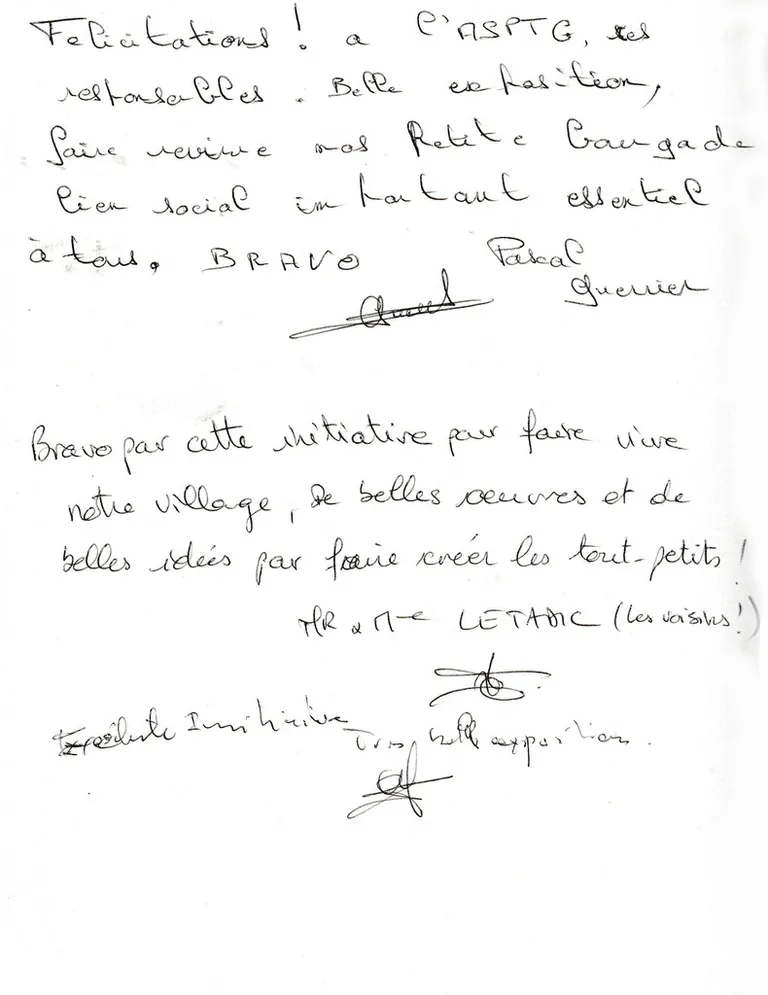 Felicitations! a l'ASPTG, ses
responsables. Belle exposition,
faire revivre nos Petite bourgade
lien social important essentiel
à tous. BRAVO Pascal
Guerrier
Bravo pour cette initiative pour faire vivre
notre village, De belles oeuvres et de
belles idées par faire créer les tout-petits!
MR & Me (Les voisins!)
Initiative
Très belle exposition.